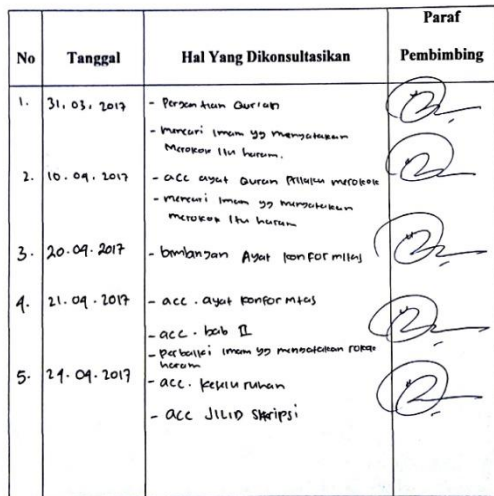 No Tanggal Hal Yang Dikonsultasikan Paraf Pembimbing
1. 31.03.2017 - Pergantian Qur'an
- mencari Imam yg menyatakan
Merokok Itu haram.
2. 10.09.2017 - acc ayat Quran Prilaku merokok
- mencari Imam yg menyatakan
merokok Itu haram
3. 20.09.2017 - bimbangan Ayat konformitas
4. 21.09.2017 - acc. ayat konformitas
- acc. bab II
- perbaiki imam yg menyatakan rokok
haram
5. 29.09.2017 - acc. keseluruhan
- acc JILID Skripsi